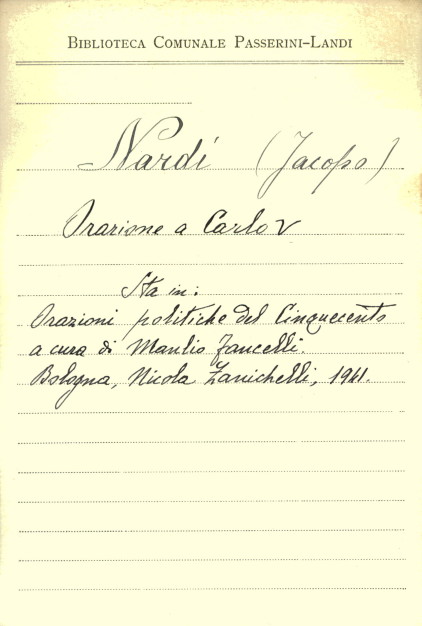 BIBLIOTECA COMUNALE PASSERINI-LANDI
Nardi (Jacopo)
Orazione a Carlo V
Sta in:
Orazioni politiche del Cinquecento
a cura di Manlio Fancelli.
Bologna, Nicola Zanichelli, 1941.